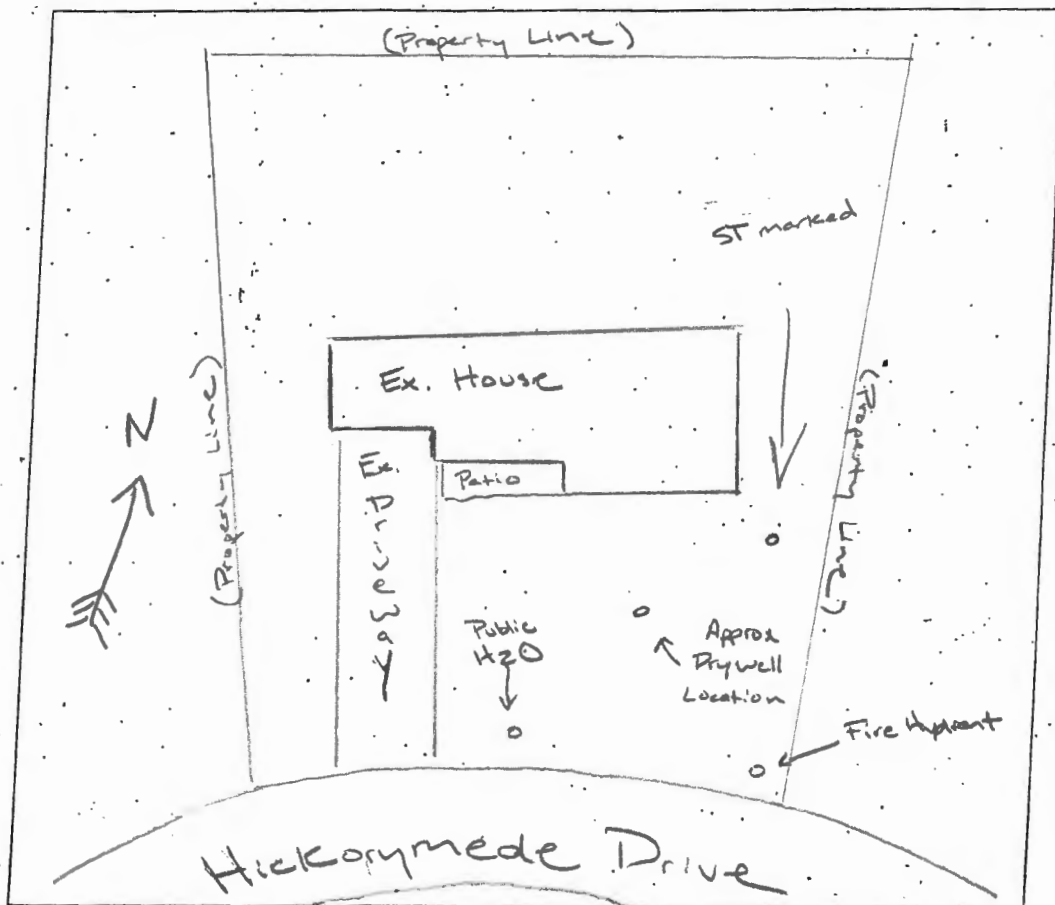 (Property Line)
ST marked
Ex. House
(Property Line)
N
(Property Line)
Ex.
Driveway
Patio
Public
H2O
Approx
Drywell
Location
Fire Hydrent
Hickorymede Drive